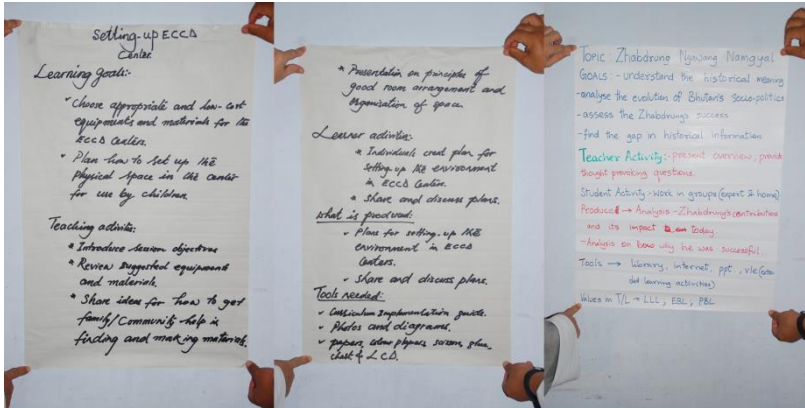 Setting-up ECCD
Center
Learning goals:-
Choose appropriate and low-cost
equipments and materials for the
ECCD Centers.
Plan how to set up the
physical space in the center
for use by children.
Teaching activities:
* Introduce session objectives
* Review suggested equipments
and materials.
* Share ideas for how to get
family/Community help in
finding and making materials.
* Presentation on principles of
good room arrangement and
organization of space.
Learner activities:
* Individuals creat plan for
setting-up the environment
in ECCD Centers.
* Share and discuss plans.
What is produced:
Plans for setting-up the
environment in ECCD
Centers.
Share and discuss plans.
Tools needed:
Curriculum Implementation guide.
Photos and diagrams.
papers, colour papers, scissors, glue,
chart & LCD.
TOPIC: Zhabdrung Ngawang Namgyal
GOALS:- understand the historical meaning
-analyse the evolution of Bhutan's socio-politics
-assess the Zhabdrung's success
-find the gap in historical information
Teacher Activity:- present overview, provide
thought provoking questions.
Student Activity-work in groups (expert & home)
Produced → Analysis - Zhabdrung's contributions
and its impact on today
-Analysis on how why he was successful.
Tools → library, internet, ppt, vle
ded learning activities)
Values in T/L → LLL, EBL, PBL